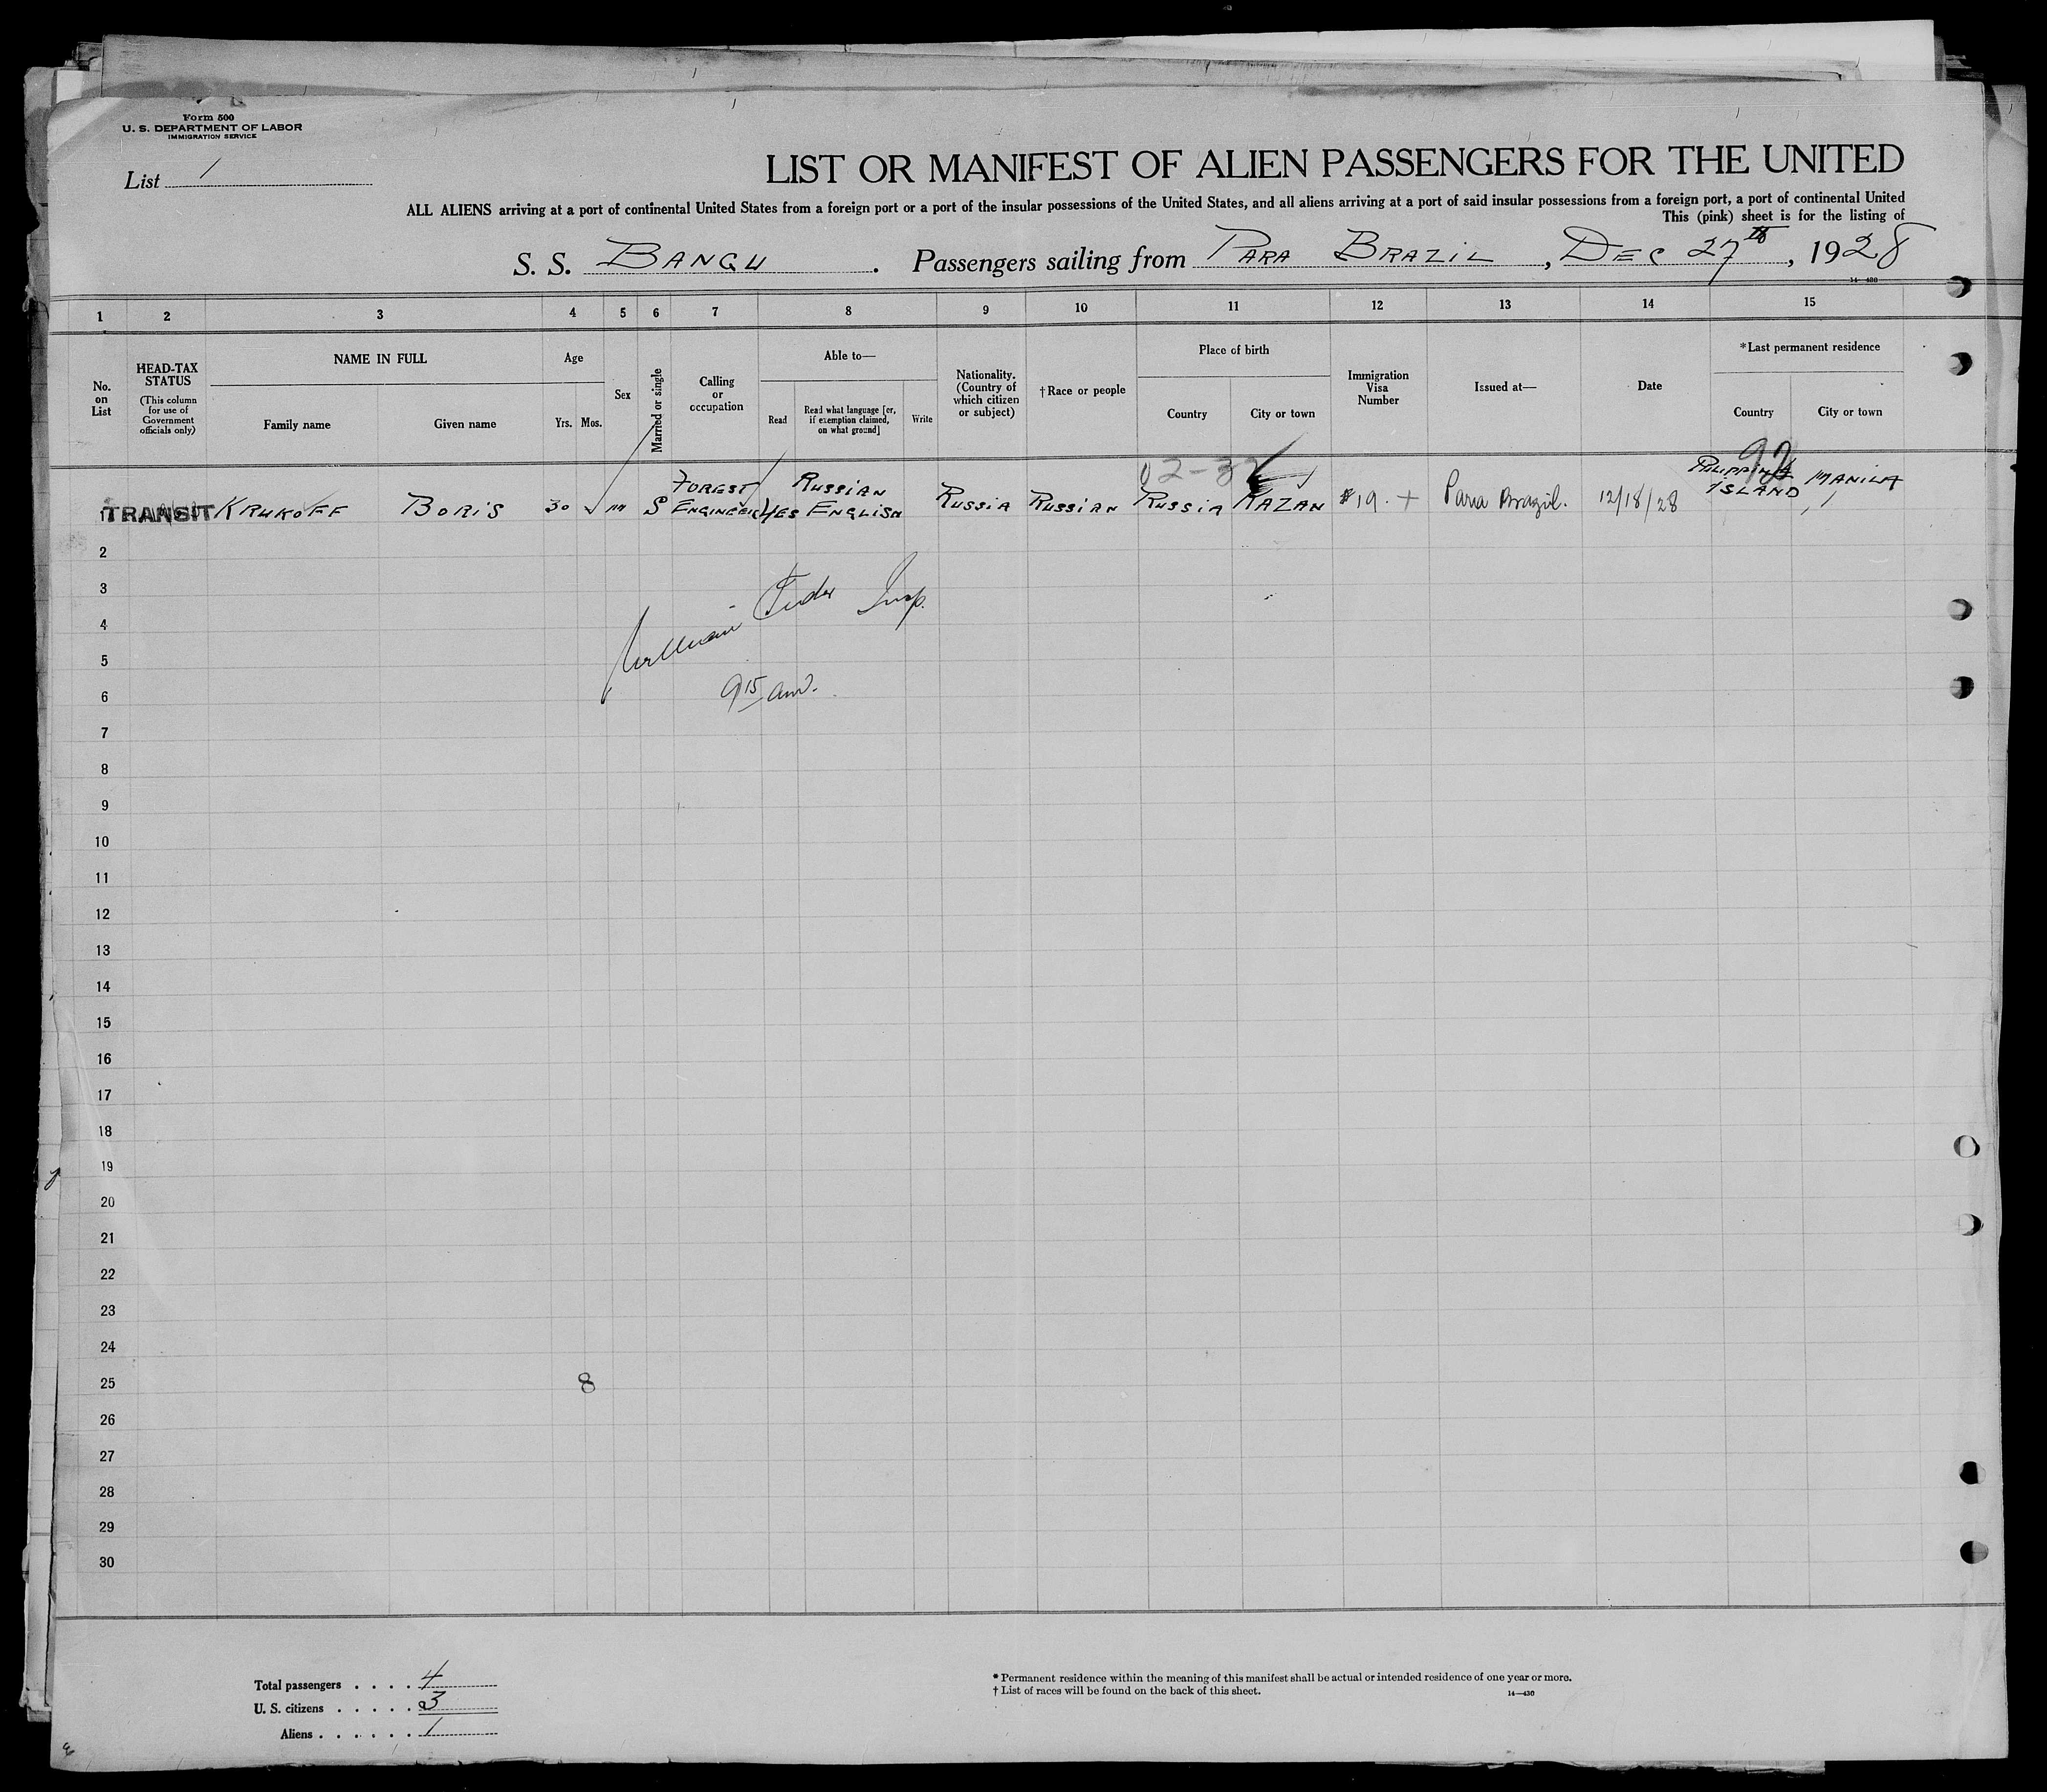 Form 500
U. S. DEPARTMENT OF LABOR
IMMIGRATION SERVICE
List 1
LIST OR MANIFEST OF ALIEN PASSENGERS FOR THE UNITED
ALL ALIENS arriving at a port of continental United States from a foreign port or a port of the insular possessions of the United States, and all aliens arriving at a port of said insular possessions from a foreign port, a port of continental United
This (pink) sheet is for the listing of
S. S. BANGU . Passengers sailing from PARA BRAZIL , DEC 27th , 1928
14—430
1 2 3 4 5 6 7 8 9 10 11 12 13 14 15
No. on List
HEAD-TAX STATUS
(This column for use of Government officials only)
NAME IN FULL
Family name Given name
Age
Yrs. Mos.
Sex
Married or single
Calling or occupation
Able to—
Read
Read what language [or, if exemption claimed, on what ground]
Write
Nationality. (Country of which citizen or subject)
†Race or people
Place of birth
Country City or town
Immigration Visa Number
Issued at—
Date
*Last permanent residence
Country City or town
02-32 92
1 TRANSIT KRUKOFF BORIS 30 M S FOREST ENGINEER YES RUSSIAN ENGLISH RUSSIA RUSSIAN RUSSIA KAZAN #19 + Para Brazil. 12/18/28 PHILIPPINE ISLAND MANILA
2
3
William Insp.
4
5
6
9 15 am.
7
8
9
10
11
12
13
14
15
16
17
18
19
20
21
22
23
24
25 8
26
27
28
29
30
Total passengers . . . . 4
U. S. citizens . . . . . 3
Aliens . . . . . . 1
* Permanent residence within the meaning of this manifest shall be actual or intended residence of one year or more.
† List of races will be found on the back of this sheet.
14—430